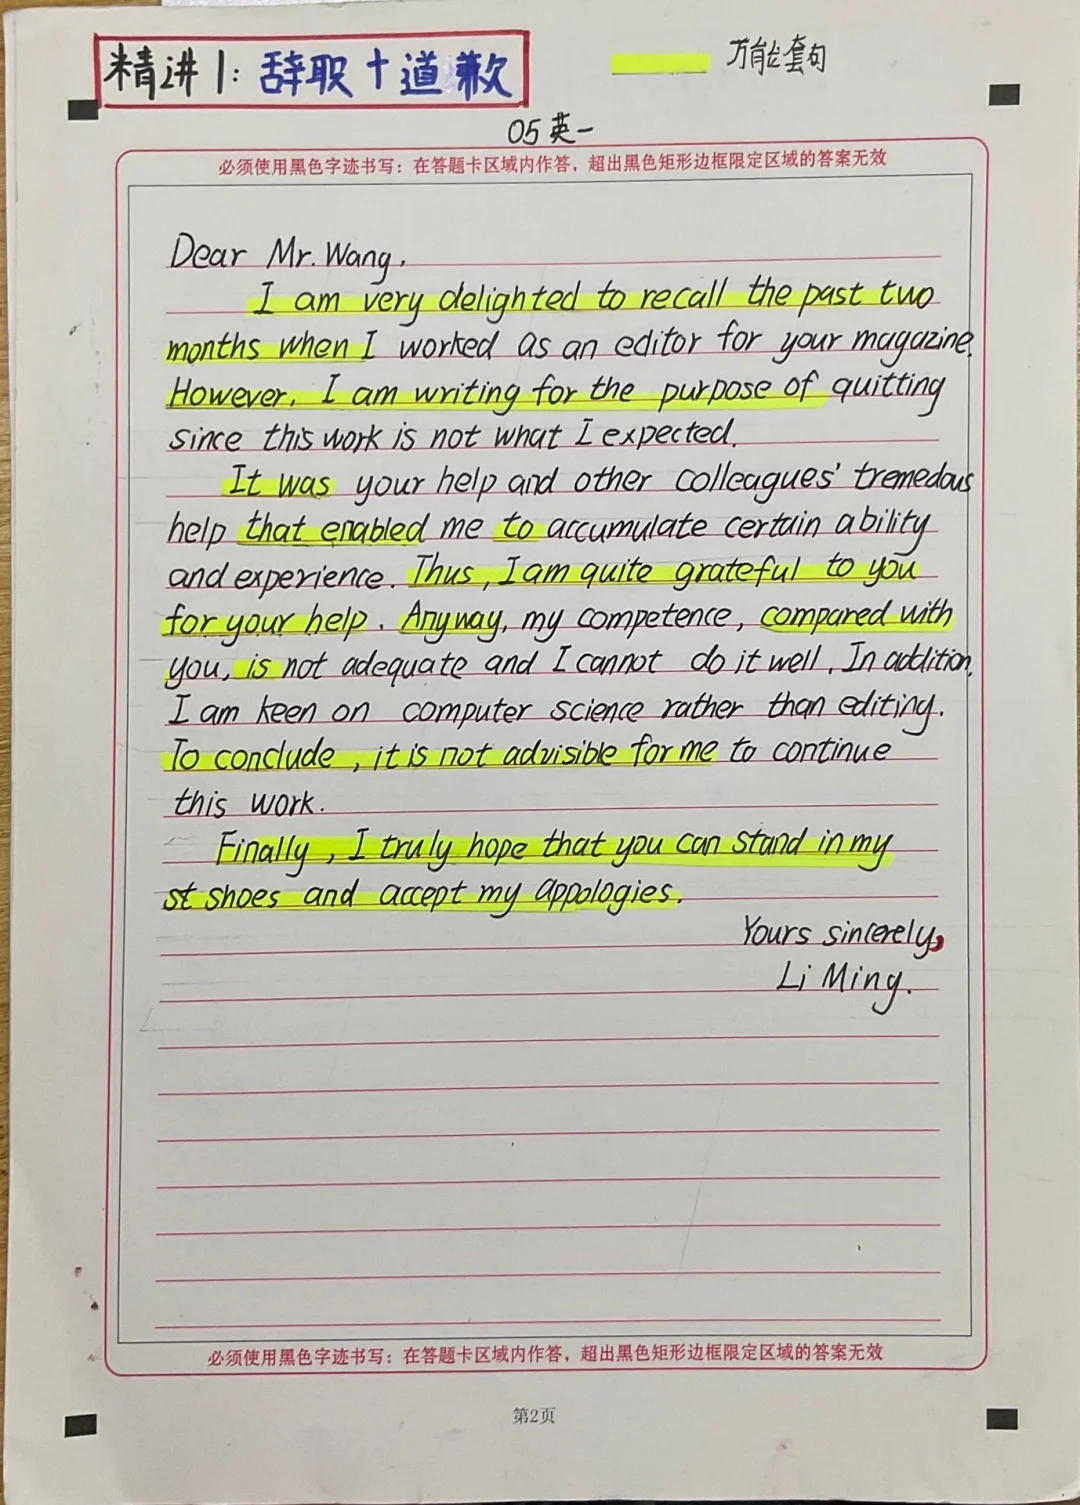 精讲1：辞职+道歉
万能套句
05英一
必须使用黑色字迹书写：在答题卡区域内作答，超出黑色矩形边框限定区域的答案无效
Dear Mr. Wang,
I am very delighted to recall the past two
months when I worked as an editor for your magazine.
However, I am writing for the purpose of quitting
since this work is not what I expected.
It was your help and other colleagues' tremedous
help that enabled me to accumulate certain ability
and experience. Thus, I am quite grateful to you
for your help. Anyway, my competence, compared with
you, is not adequate and I cannot do it well. In addition,
I am keen on computer science rather than editing.
To conclude, it is not advisible for me to continue
this work.
Finally, I truly hope that you can stand in my
st shoes and accept my appologies.
Yours sincerely,
Li Ming.
必须使用黑色字迹书写：在答题卡区域内作答，超出黑色矩形边框限定区域的答案无效
第2页